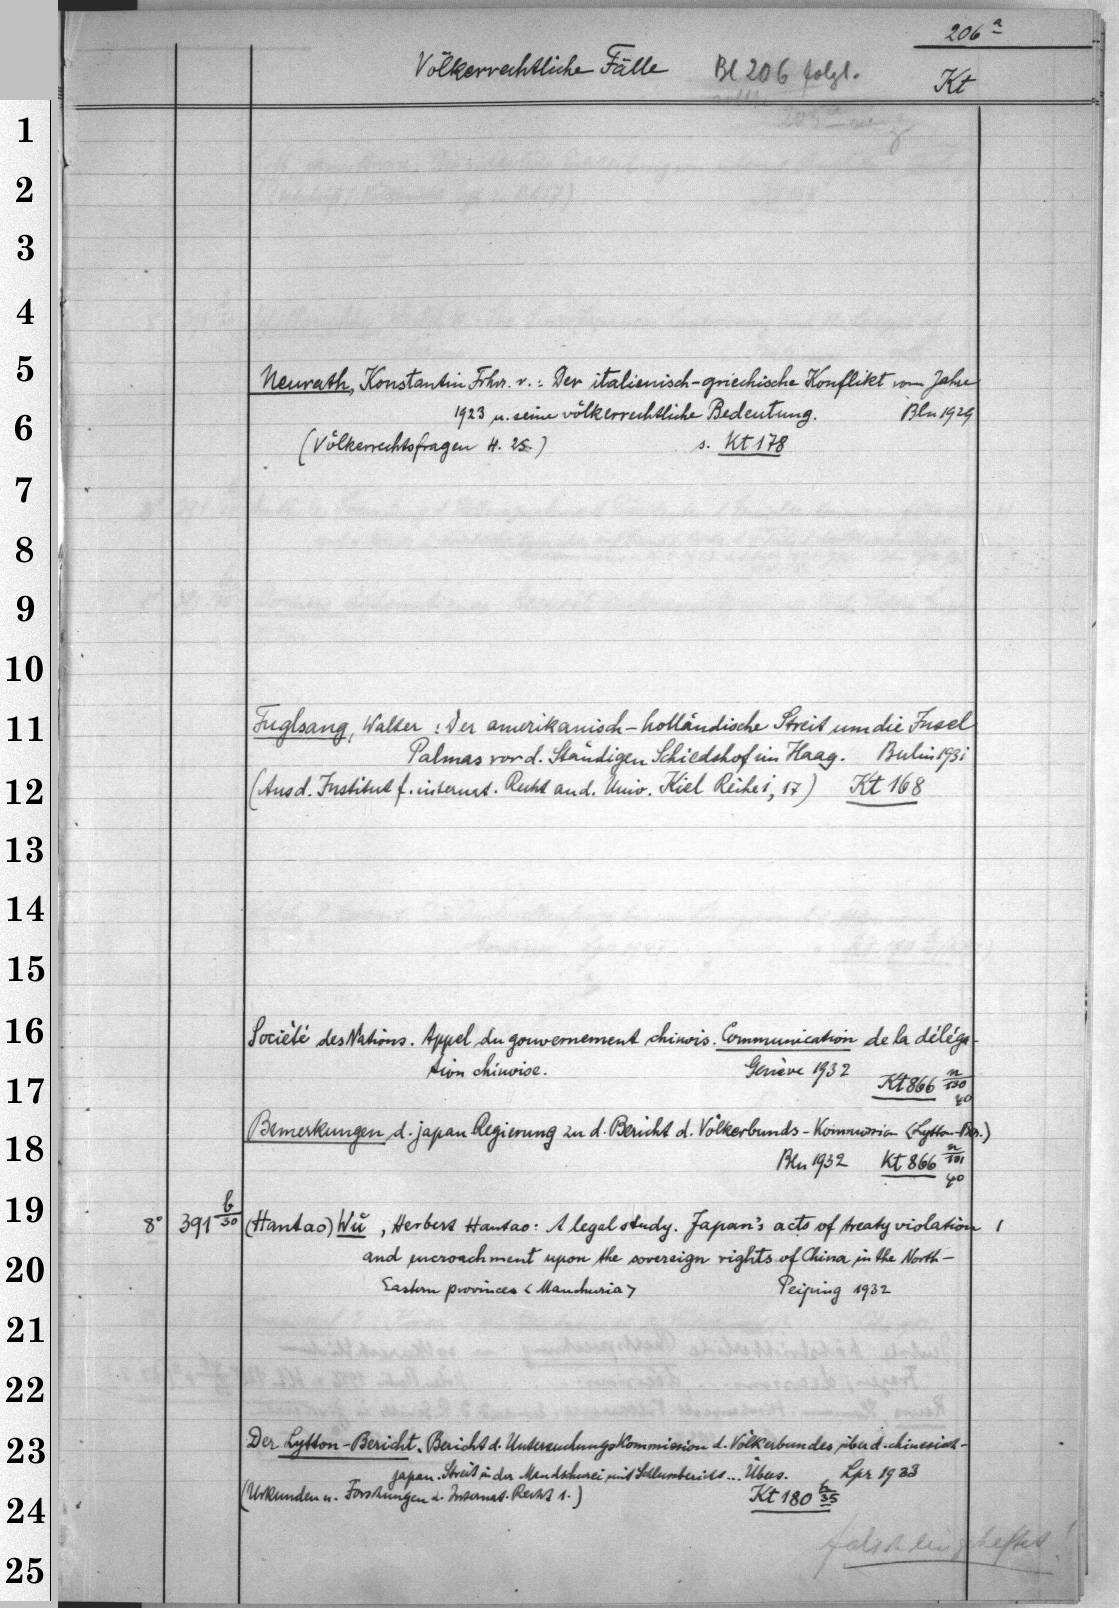 206 a
Völkerrechtliche Fälle Bl 206 folgt.
Kt
1
2
3
4
5
Neurath, Konstantin Frhr. v.: Der italienisch-griechische Konflikt vom Jahre
1923 u. seine völkerrechtliche Bedeutung. Bln 1929
6
(Völkerrechtsfragen H. 25.) s. Kt 178
7
8
9
10
11
Fuglsang, Walter: Der amerikanisch-holländische Streit um die Insel
Palmas vor d. Ständigen Schiedshof im Haag. Berlin 1931
12
(Aus d. Institut f. internat. Recht an d. Univ. Kiel Reihe 1, 17) Kt 168
13
14
15
16
Société des Nations. Appel du gouvernement chinois. Communication de la déléga-
tion chinoise. Genève 1932
17
Kt 866 n/130 40
Bemerkungen d. japan Regierung zu d. Bericht d. Völkerbunds-Kommission (Lytton-Ber.)
18
Bln 1932 Kt 866 n/131 40
19
8° 391 b/30 (Hantao) Wŭ, Herbert Hantao: A legal study. Japan's acts of treaty violation 1
and encroachment upon the sovereign rights of China in the North-
20
Eastern provinces <Manchuria> Peiping 1932
21
22
23
Der Lytton-Bericht. Bericht d. Untersuchungskommission d. Völkerbundes über d. chinesisch-
japan. Streit in der Mandschurei mit Schlumberichts... Übers. Lpz 1933
24
(Urkunden u. Forschungen z. Internat. Recht 1.) Kt 180 b/35
falsch eingeheftet!
25